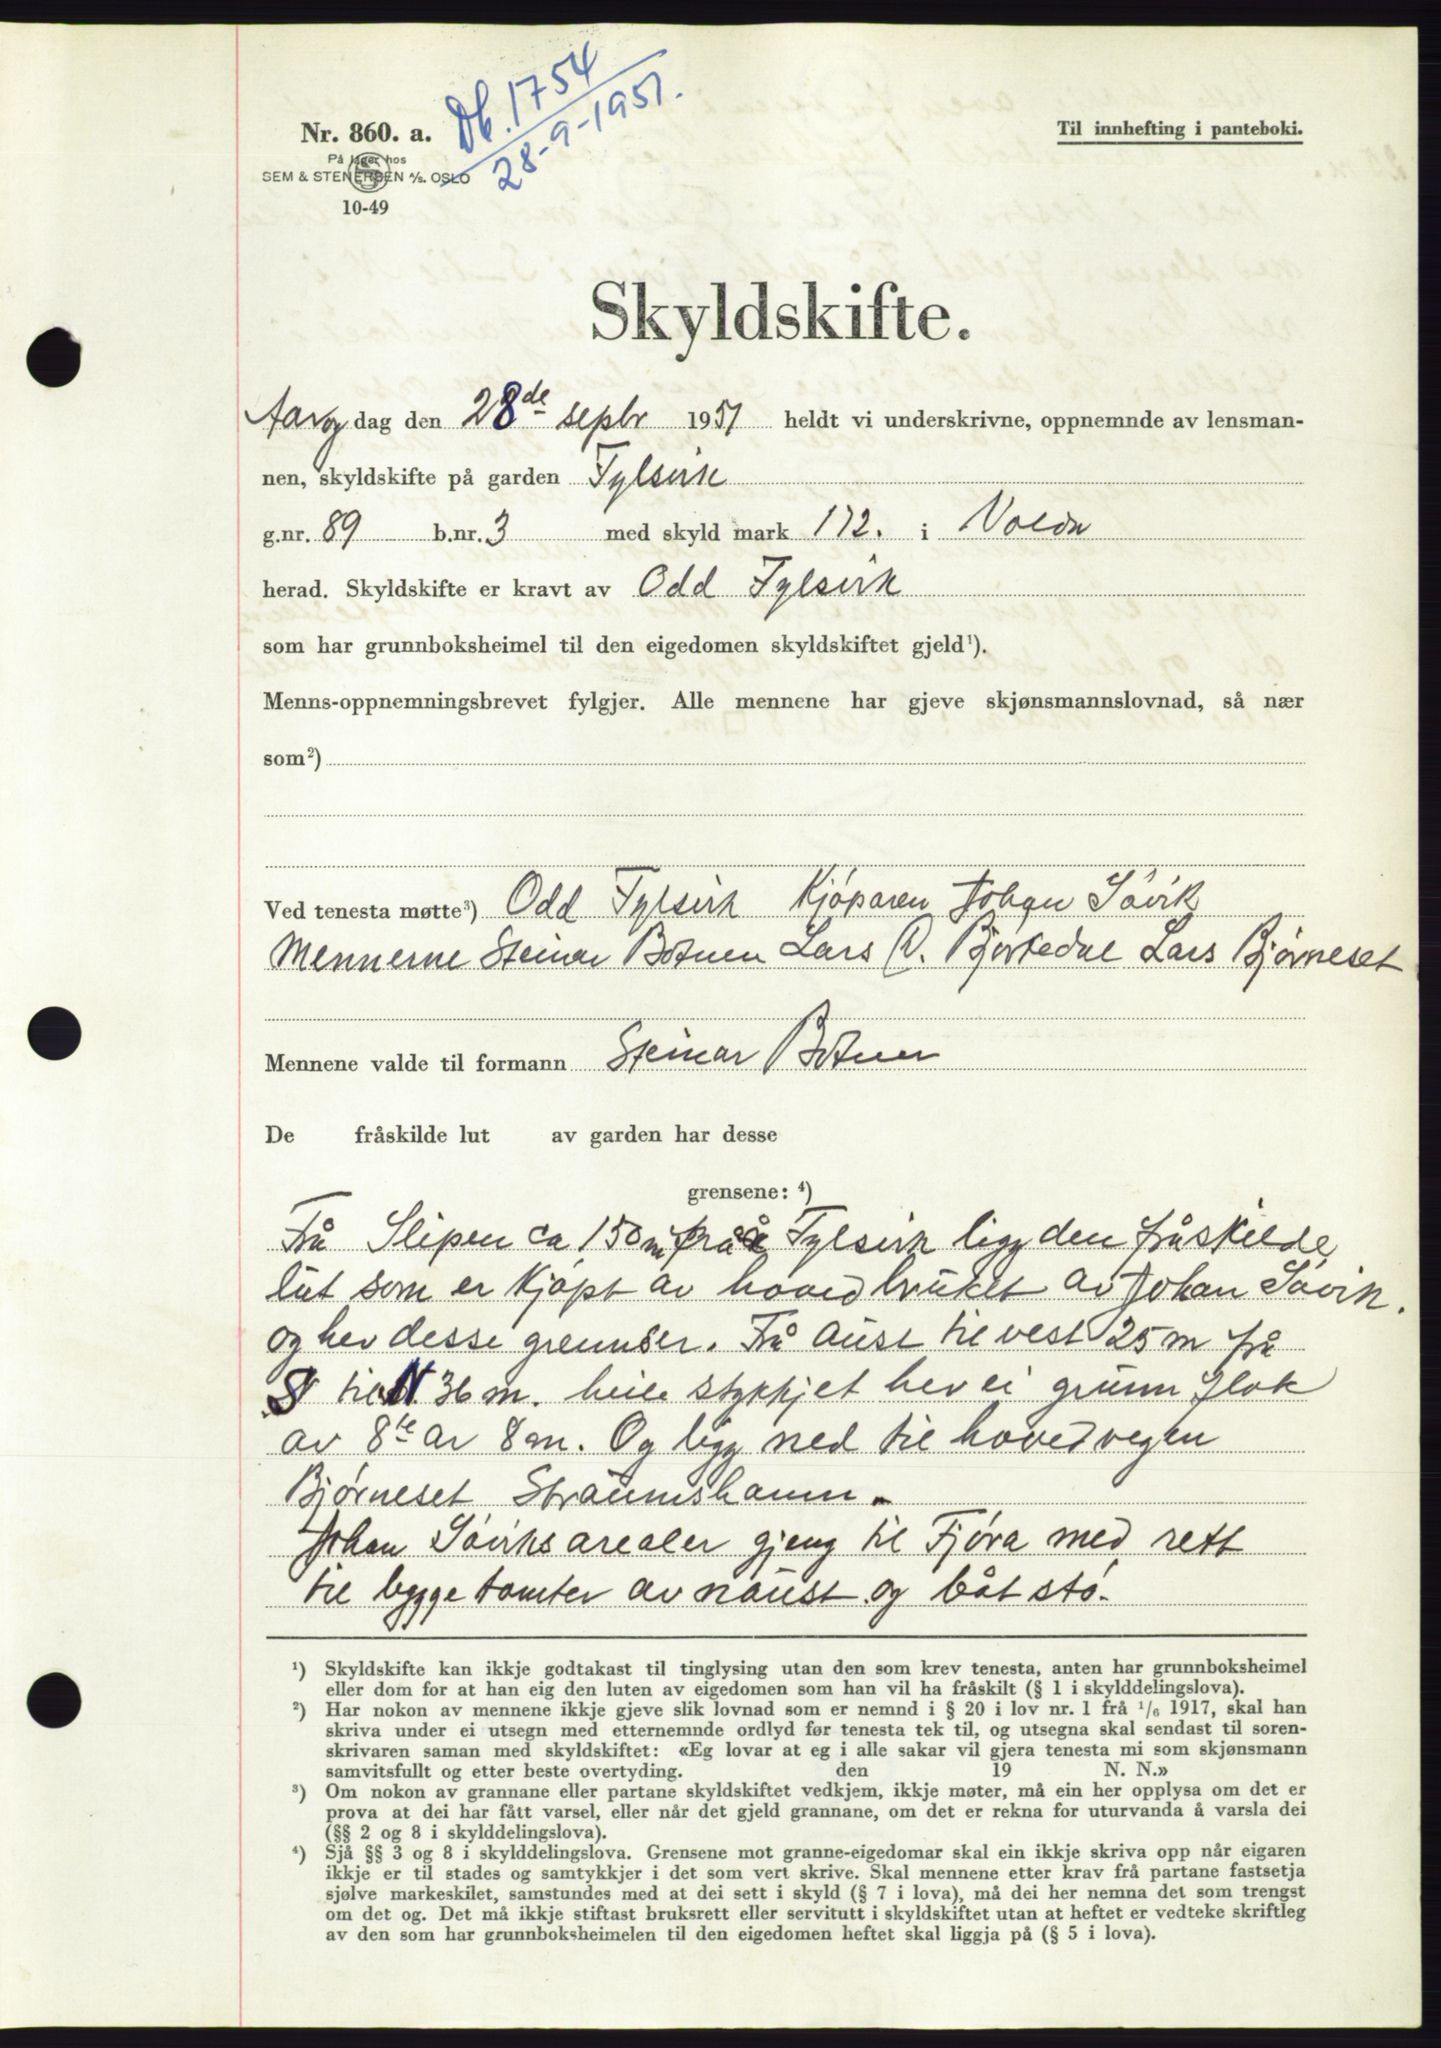 Db. 1754
28-9-1951.
Nr. 860. a.
På lager hos
SEM & STENERSEN A/S. OSLO
10-49
Til innhefting i panteboki.
Skyldskifte.
dag den 28de septbr 1951 heldt vi underskrivne, oppnemnde av lensman-
nen, skyldskifte på garden Fylsvik
g.nr. 89 b.nr. 3 med skyld mark 172. i Volda
herad. Skyldskifte er kravt av Odd Fylsvik
som har grunnboksheimel til den eigedomen skyldskiftet gjeld¹).
Menns-oppnemningsbrevet fylgjer. Alle mennene har gjeve skjønsmannslovnad, så nær
som²)
Ved tenesta møtte³) Odd Fylsvik Kjöparen Johan Sövik
Mennerne Steinar Botnen Lars O. Bjørkedal Lars Bjørneset
Mennene valde til formann Steinar Botnen
De fråskilde lut av garden har desse
grensene: ⁴)
Frå Slipen ca 150 m frå Fylsvik ligg den fråskilde
lut som er Kjöpt av hoved bruket av Johan Sövik.
og hev desse grennser. Frå aust til vest 25 m frå
S til N 36 m. heile stykkjet hev ei grunn flok
av 8te ar 8 m. Og ligg ned til hovedvegen
Bjørneset Straumshamn.
Johan Söviks arealer gjeng til Fjöra med rett
til bygge tomter av naust og båt stö.
¹) Skyldskifte kan ikkje godtakast til tinglysing utan den som krev tenesta, anten har grunnboksheimel
eller dom for at han eig den luten av eigedomen som han vil ha fråskilt (§ 1 i skylddelingslova).
²) Har nokon av mennene ikkje gjeve slik lovnad som er nemnd i § 20 i lov nr. 1 frå ¹/₆ 1917, skal han
skriva under ei utsegn med etternemnde ordlyd før tenesta tek til, og utsegna skal sendast til soren-
skrivaren saman med skyldskiftet: «Eg lovar at eg i alle sakar vil gjera tenesta mi som skjønsmann
samvitsfullt og etter beste overtyding. den 19 N. N.»
³) Om nokon av grannane eller partane skyldskiftet vedkjem, ikkje møter, må ein her opplysa om det er
prova at dei har fått varsel, eller når det gjeld grannane, om det er rekna for uturvanda å varsla dei
(§§ 2 og 8 i skylddelingslova).
⁴) Sjå §§ 3 og 8 i skylddelingslova. Grensene mot granne-eigedomar skal ein ikkje skriva opp når eigaren
ikkje er til stades og samtykkjer i det som vert skrive. Skal mennene etter krav frå partane fastsetja
sjølve markeskilet, samstundes med at dei sett i skyld (§ 7 i lova), må dei her nemna det som trengst
om det og. Det må ikkje stiftast bruksrett eller servitutt i skyldskiftet utan at heftet er vedteke skriftleg
av den som har grunnboksheimelen til den eigedomen heftet skal liggja på (§ 5 i lova).